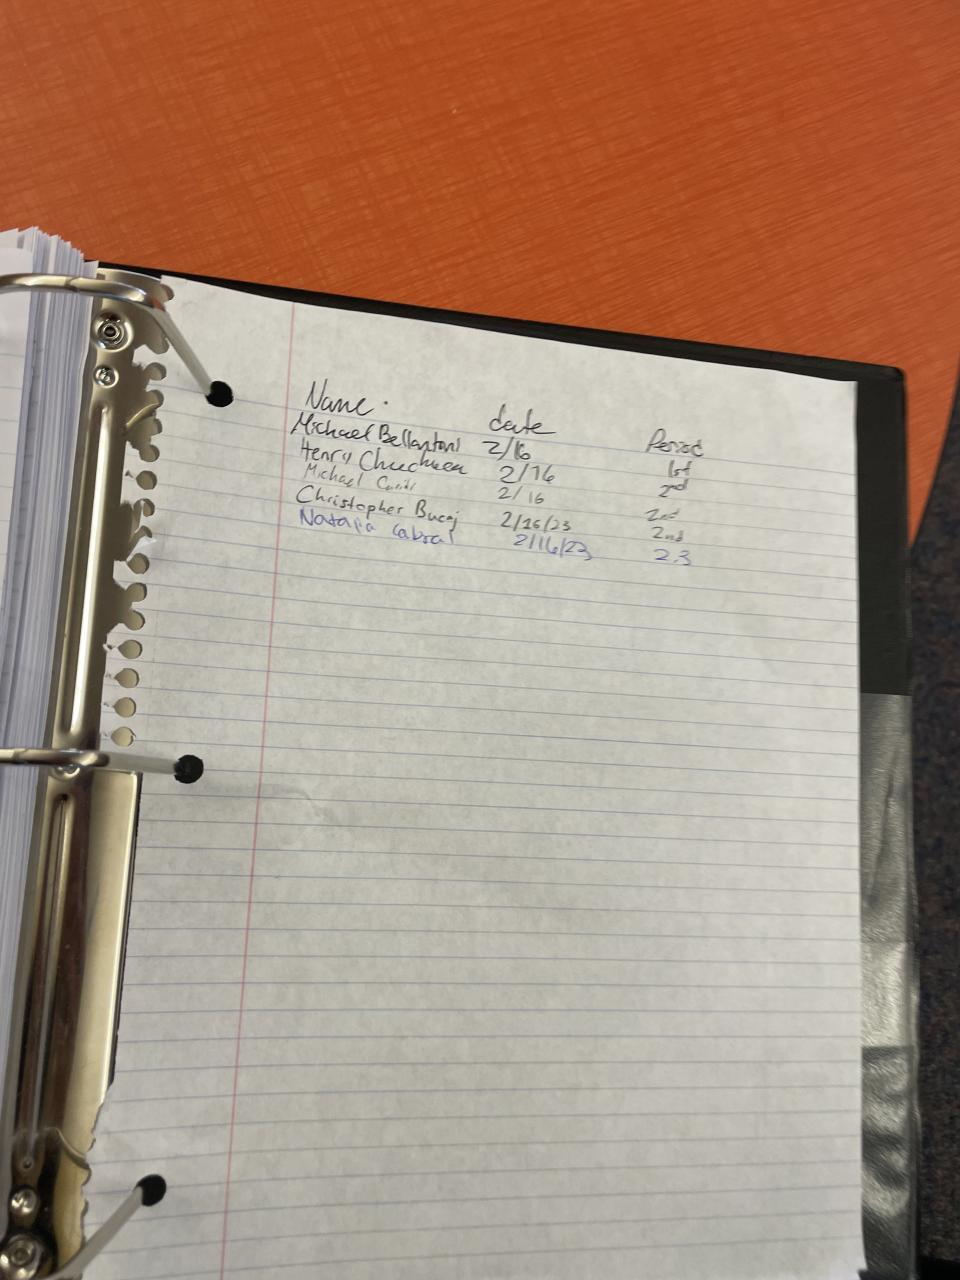 Name. date Period
Michael Bellantoni 2/16 1st
Henry 2/16 2nd
Michael 2/16 2nd
Christopher Bucaj 2/16/23 2nd
Natalia Cabral 2/16/23 2.3